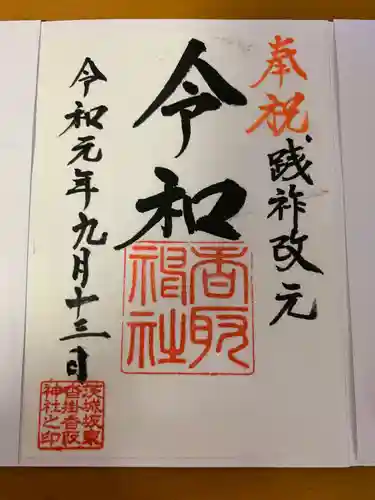 奉祝践祚改元
令和
香取神社
令和元年九月十三日
茨城坂東
沓掛香取
神社之印